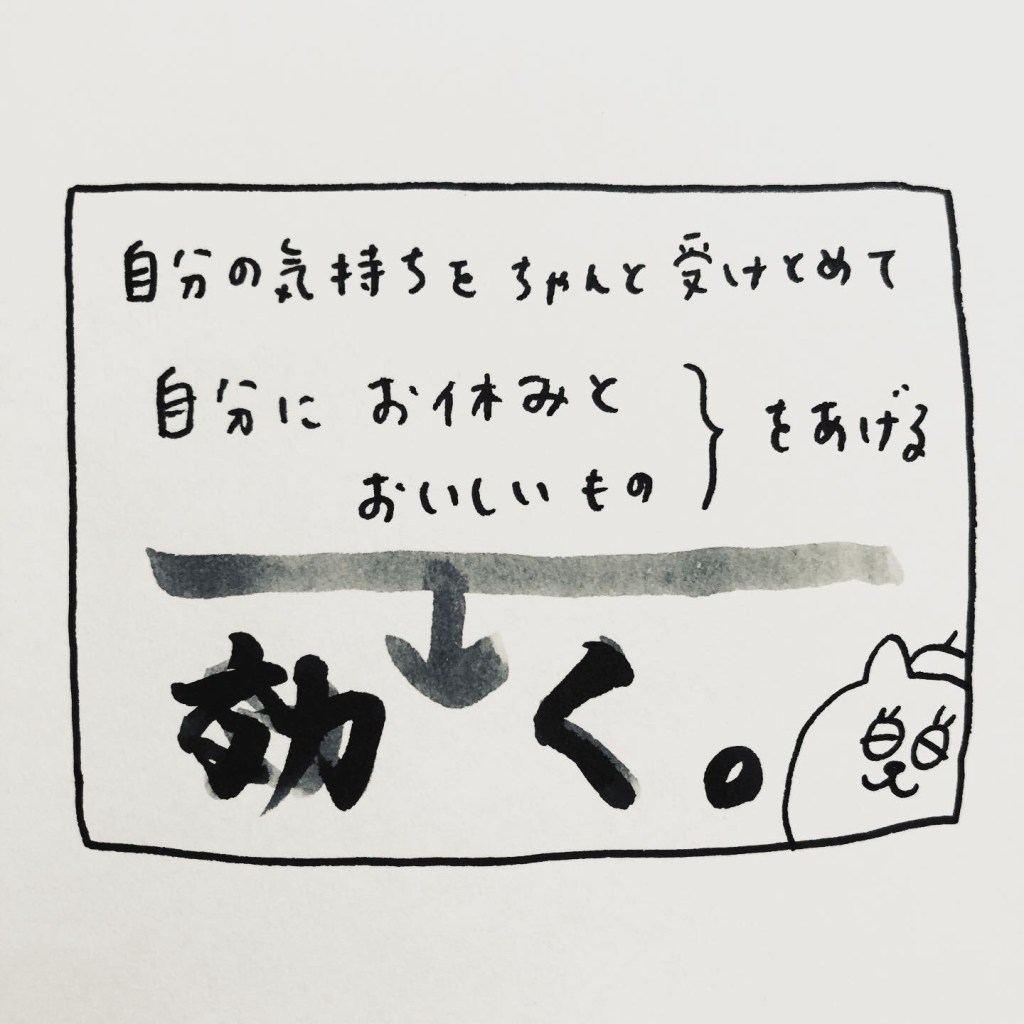 自分の気持ちをちゃんと受けとめて
自分に お休みと
おいしいもの } をあげる
効く。